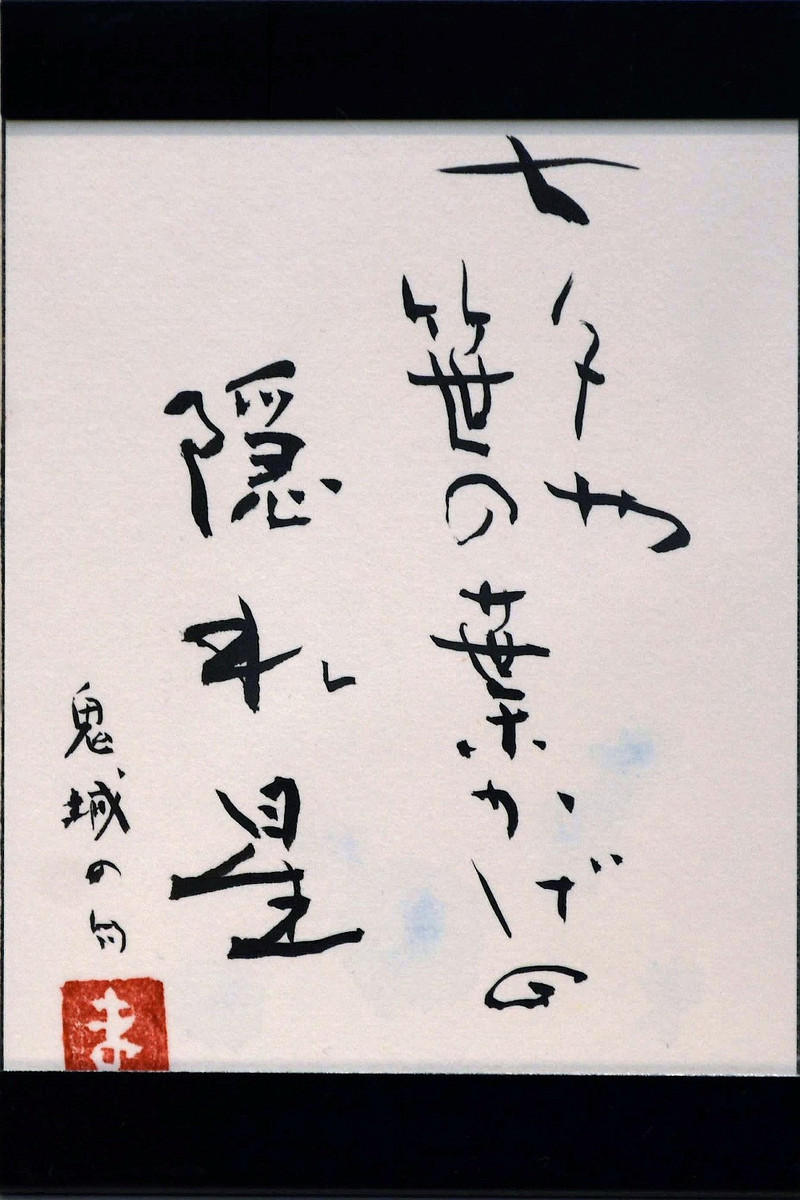 七夕や
笹の葉かげの
隠れ星
鬼城の句
ま